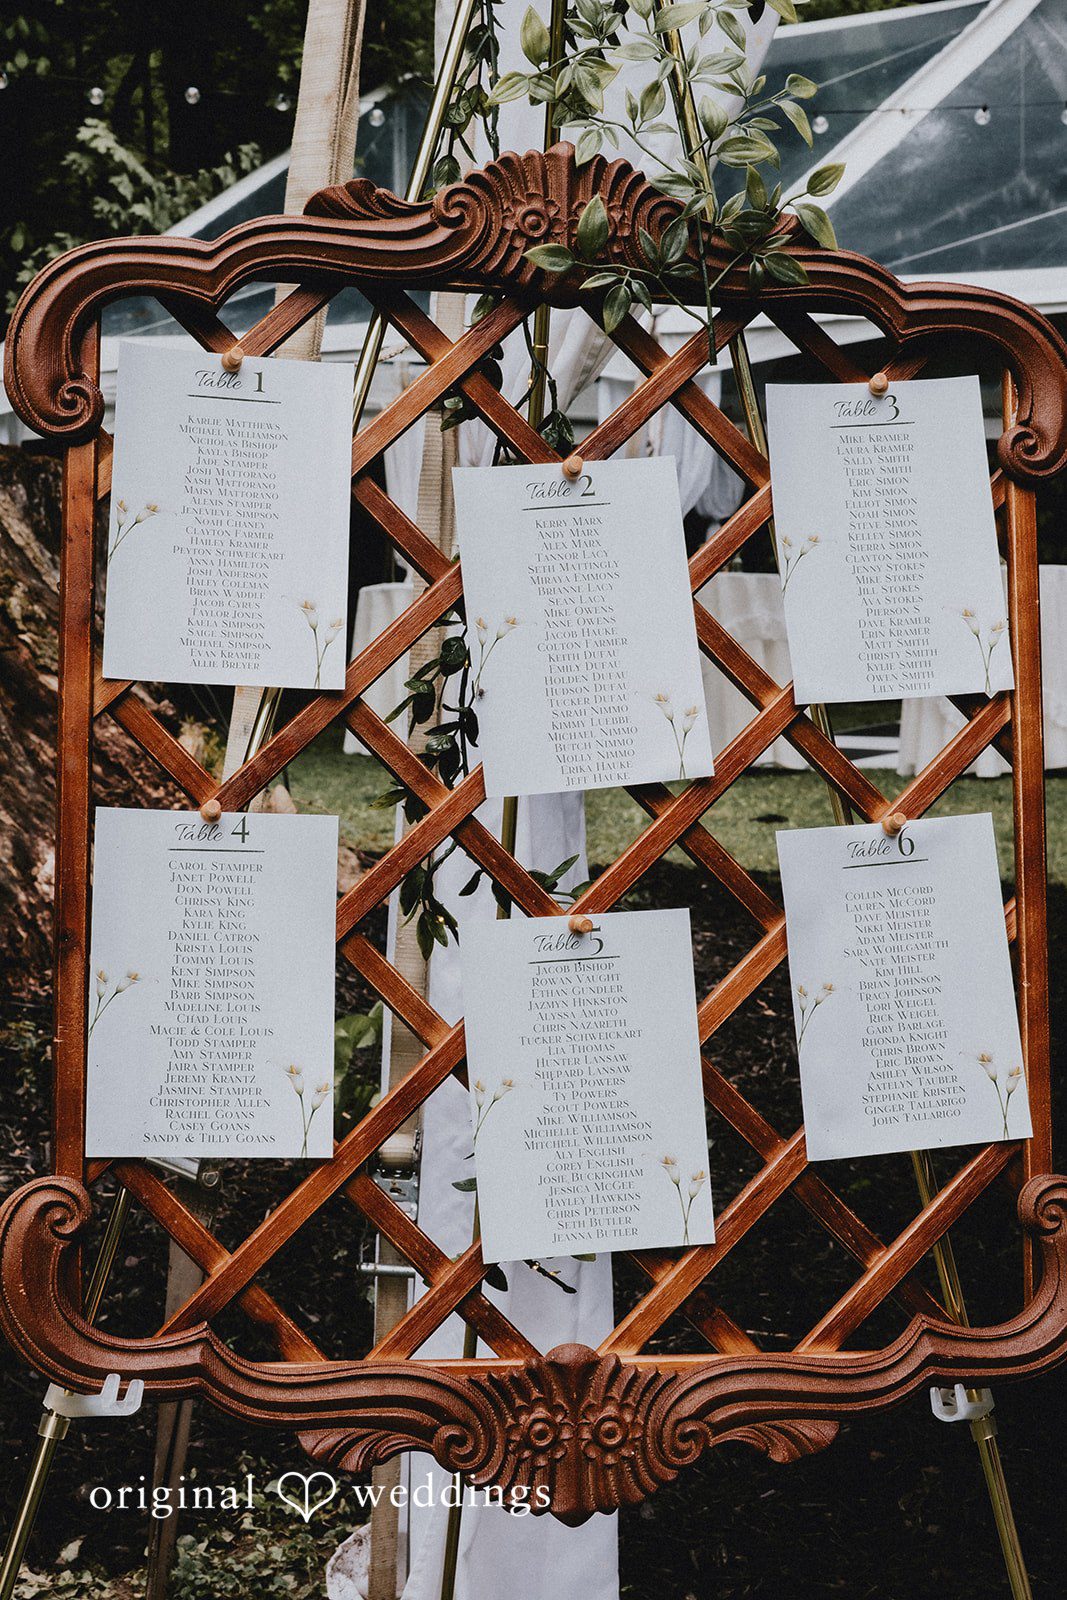 Table 1
KARLIE MATTHEWS
MICHAEL WILLIAMSON
NICHOLAS BISHOP
KAYLA BISHOP
JADE STAMPER
JOSH MATTORANO
NASH MATTORANO
MAISY MATTORANO
ALEXIS STAMPER
JENEVILEYE SIMPSON
NOAH CHANEY
CLAYTON FARMER
HAILEY KRAMER
PEYTON SCHWEICKART
ANNA HAMILTON
JOSH ANDERSON
HALEY COLEMAN
BRIAN WADDLE
JACOB CYRUS
TAYLOR JONES
KAELA SIMPSON
SAIGE SIMPSON
MICHAEL SIMPSON
EVAN KRAMER
ALLIE BREYER
Table 2
KERRY MARX
ANDY MARX
ALEX MARX
TANNOR LACY
SETH MATTINGLY
MIRAYA EMMONS
BRIANNE LACY
SEAN LACY
MIKE OWENS
ANNE OWENS
JACOB HAUKE
COLTON FARMER
KEITH DUFAU
EMILY DUFAU
HOLDEN DUFAU
HUDSON DUFAU
TUCKER DUFAU
SARAH NIMMO
KIMMY LUEBBI
MICHAEL NIMMO
BUTCH NIMMO
MOLLY NIMMO
ERIKA HAUKE
JEFF HAUKE
Table 3
MIKE KRAMER
LAURA KRAMER
SALLY SMITH
TERRY SMITH
ERIC SIMON
KIM SIMON
ELLIOT SIMON
NOAH SIMON
STEVE SIMON
KELLEY SIMON
SIERRA SIMON
CLAYTON SIMON
JENNY STOKES
MIKE STOKES
JILL STOKES
AVA STOKES
PIERSON S
DAVE KRAMER
ERIN KRAMER
MATT SMITH
CHRISTY SMITH
KYLIE SMITH
OWEN SMITH
LILY SMITH
Table 4
CAROL STAMPER
JANET POWELL
DON POWELL
CHRISSY KING
KARA KING
KYLIE KING
DANIEL CATRON
KRISTA LOUIS
TOMMY LOUIS
KENT SIMPSON
MIKE SIMPSON
BARB SIMPSON
MADELINE LOUIS
CHAD LOUIS
MACIE & COLE LOUIS
TODD STAMPER
AMY STAMPER
JAIRA STAMPER
JEREMY KRANTZ
JASMINE STAMPER
CHRISTOPHER ALLEN
RACHEL GOANS
CASEY GOANS
SANDY & TILLY GOANS
Table 5
JACOB BISHOP
ROWAN VAUGHT
ETHAN GUNDLER
JAZMYN HINKSTON
ALYSSA AMATO
CHRIS NAZARETH
TUCKER SCHWEICKART
LIA THOMAS
HUNTER LANSAW
SHEPARD LANSAW
ELLEY POWERS
TY POWERS
SCOUT POWERS
MIKE WILLIAMSON
MICHELLE WILLIAMSON
MITCHELL WILLIAMSON
ALY ENGLISH
COREY ENGLISH
JOSIE BUCKINGHAM
JESSICA MCGEE
HAYLEY HAWKINS
CHRIS PETERSON
SETH BUTLER
JEANNA BUTLER
Table 6
COLLIN MCCORD
LAUREN MCCORD
DAVE MEISTER
NIKKI MEISTER
ADAM MEISTER
SARA WOHLGAMUTH
NATE MEISTER
KIM HILL
BRIAN JOHNSON
TRACY JOHNSON
LORI WEIGEL
RICK WEIGEL
GARY BARLAGE
RHONDA KNIGHT
CHRIS BROWN
ERIC BROWN
ASHLEY WILSON
KATELYN TAUBER
STEPHANIE KRISTEN
GINGER TALLARIGO
JOHN TALLARIGO
original weddings